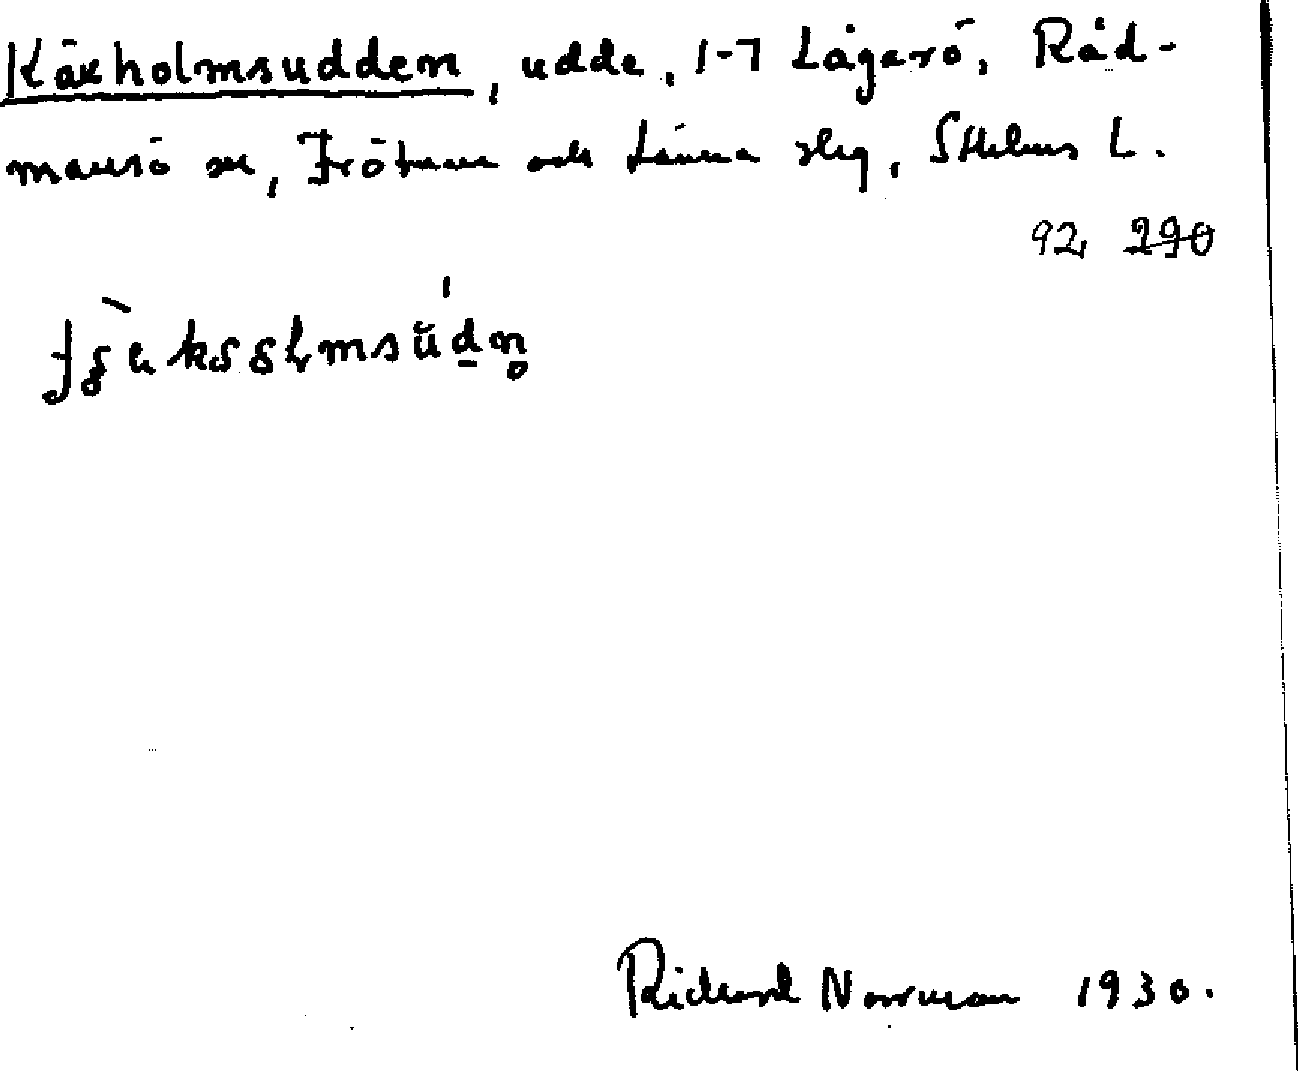 Käxholmsudden, udde, 1-7 Lågarö, Råd-
mansö sn, Frötuna och Länna slg, Sthlms L.
92, 290
Richard Norrman 1930.